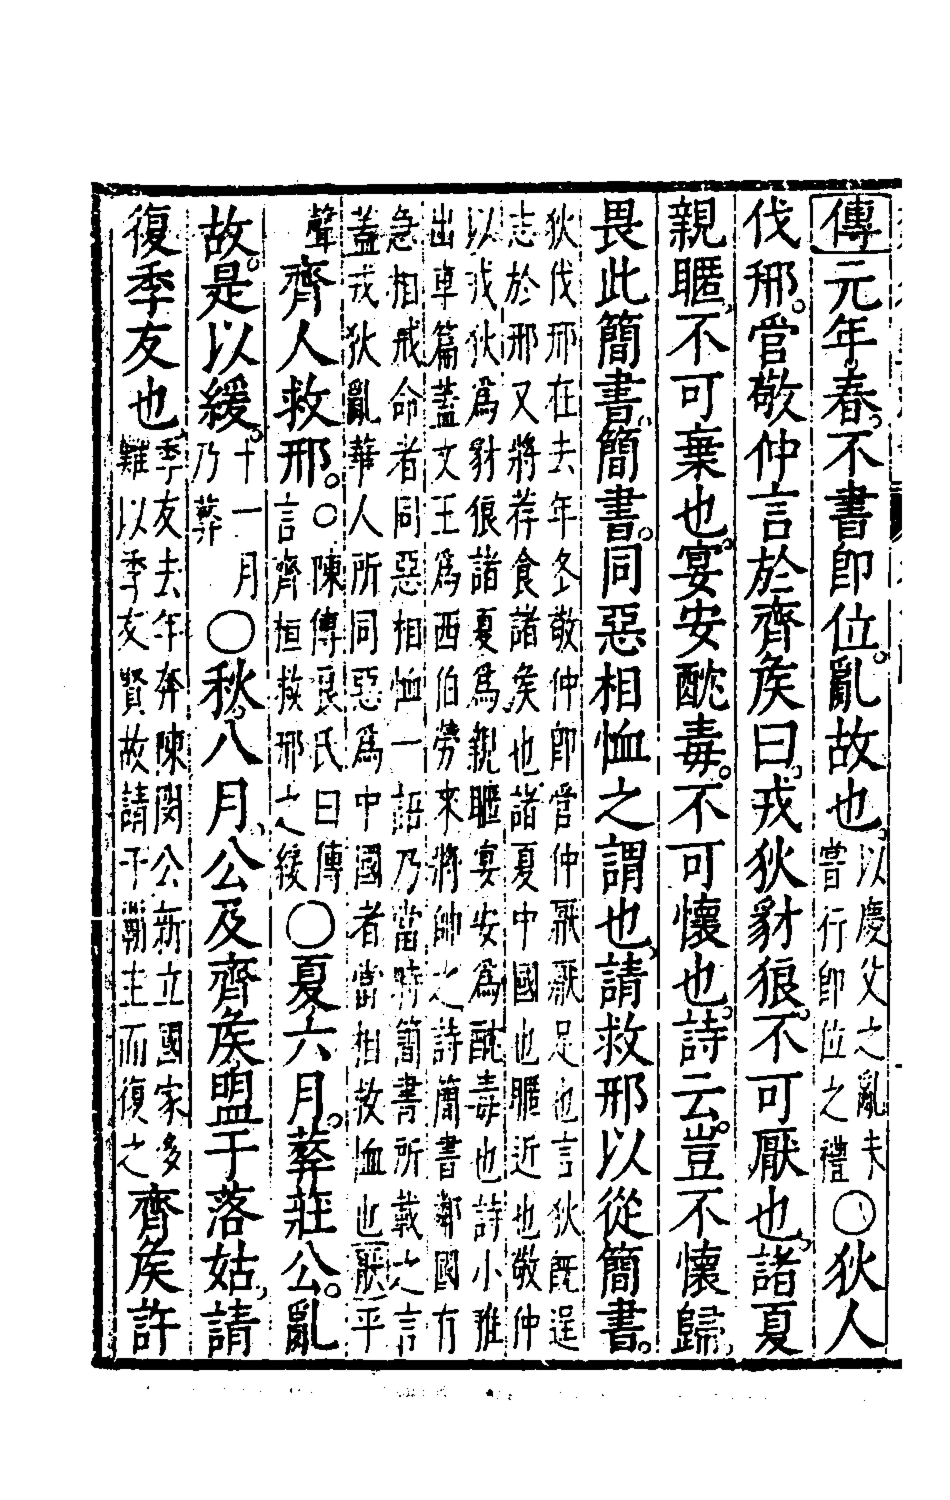 傳元年春。不書即位。亂故也。以慶父之亂未
嘗行即位之禮○狄人
伐邢。管敬仲言於齊矦曰、戎狄豺狼。不可厭也、諸夏
親暱、不可棄也。宴安酖毒。不可懷也。詩云。豈不懷歸、
畏此簡書、簡書。同惡相恤之謂也、請救邢以從簡書。
狄伐邢在去年冬敬仲即管仲厭厭足也言狄既逞
志於邢又將荐食諸矦也諸夏中國也暱近也敬仲
以戎狄為豺狼諸夏為親暱宴安為酖毒也詩小雅
出車篇蓋文王為西伯勞來將帥之詩簡書鄰國有
急相戒命者同惡相恤一語乃當時簡書所載之言
蓋戎狄亂華人所同惡為中國者當相救恤也厭平
聲 齊人救邢。○陳傅良氏曰傳
言齊桓救邢之緩○夏六月。葬莊公。亂
故。是以緩。十一月
乃葬○秋、八月、公及齊矦盟于落姑、請
復季友也、季友去年奔陳閔公新立國家多
難以季友賢故請于霸主而復之齊矦許